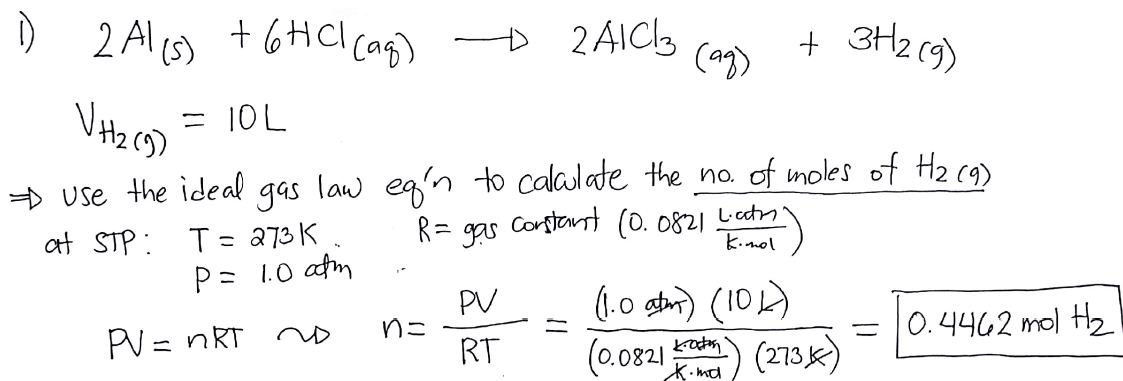 1) 2 Al (s) + 6 HCl (aq) → 2 AlCl3 (aq) + 3H2 (g)
V H2 (g) = 10 L
⇒ use the ideal gas law eq'n to calculate the no. of moles of H2 (g)
at STP: T = 273 K R = gas constant (0.0821 L·atm / K·mol)
P = 1.0 atm
PV = nRT ⤳ n = PV / RT = (1.0 atm) (10 L) / (0.0821 L·atm / K·mol) (273 K) = 0.4462 mol H2